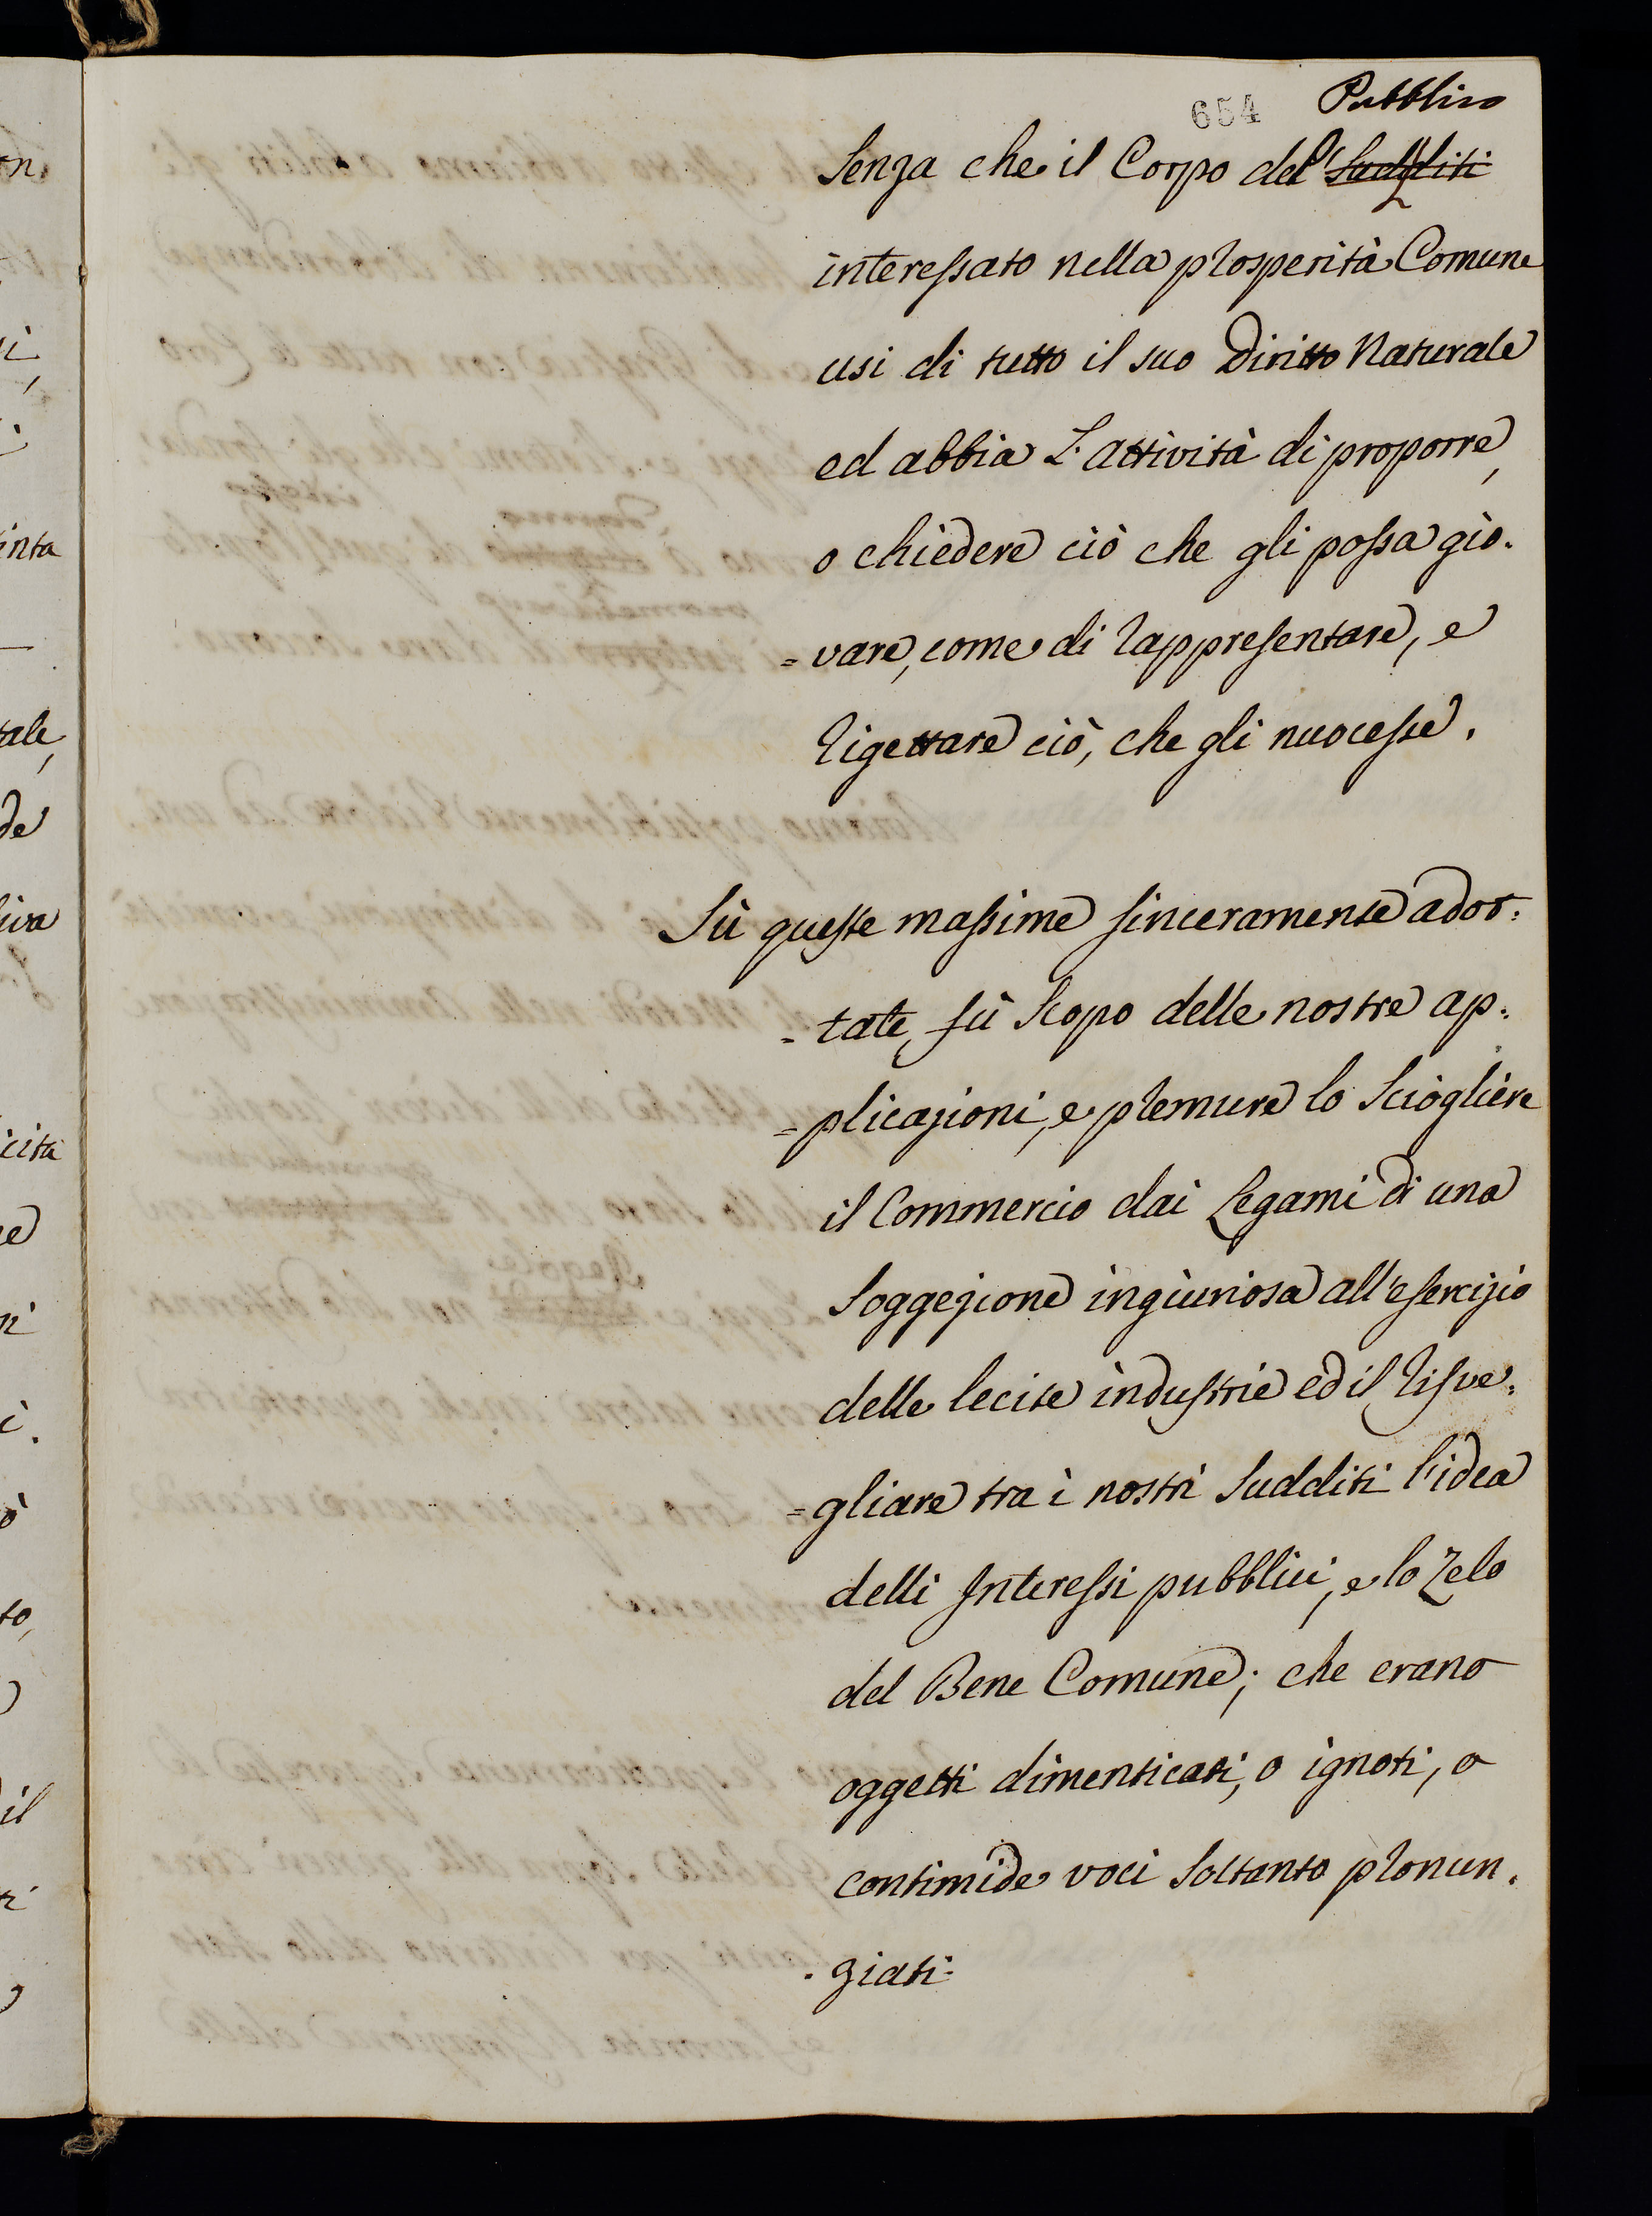 654 Pubblico
Senza che il Corpo del Sudditi
interessato nella prosperità Comune
usi di tutto il suo Diritto Naturale
ed abbia L'attività di proporre,
o chiedere ciò che gli possa gio.
=vare, come di rappresentare, e
rigettare ciò, che gli nuocesse.
Sù queste massime sinceramente adot:
=tate, fù Scopo delle nostre ap:
=plicazioni, e premure lo Sciogliere
il Commercio dai Legami di una
Soggezione ingiuriosa all'esercizio
delle lecite industrie ed il risve:
=gliare tra i nostri Sudditi l'idea
delli Interessi pubblici, e lo Zelo
del Bene Comune; che erano
oggetti dimenticati, o ignoti, o
con timide voci Soltanto pronun.
.ziati.